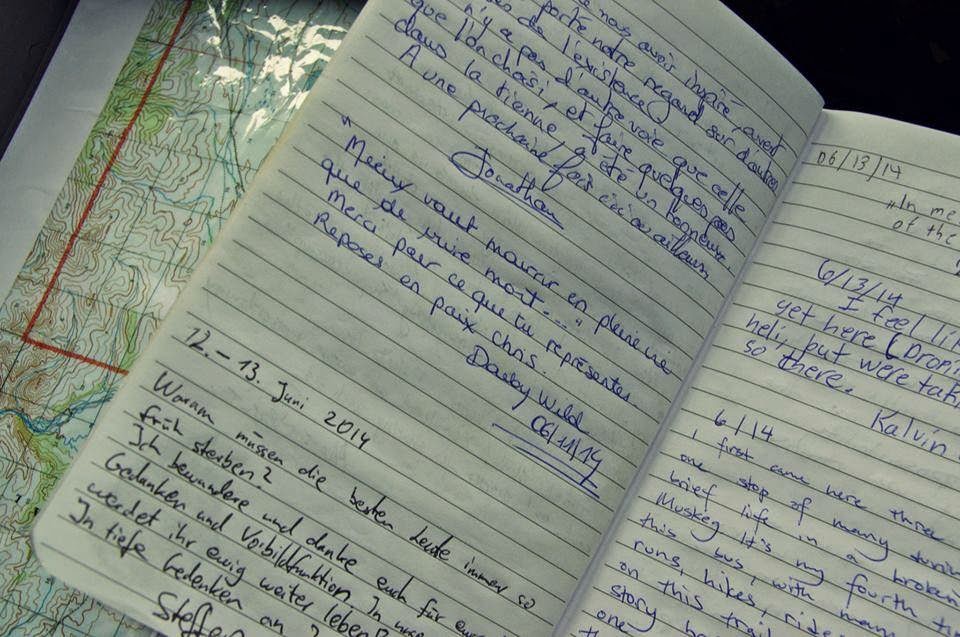 nous avoir inspiré, avoir
porté notre regard sur d'autres
de l'existence
n'y a pas d'autre voie que celle
que l'on choisi, et faire quelques pas
dans la tienne, a été un honneur.
A une prochaine fois ici ou ailleurs
Jonathan
" Mieux vaut mourrir en pleine vie
que de vivre mort .... "
Merci pour ce que tu représentes
Reposes en paix Chris.
Darby Wild
06/11/14
12. - 13. Juni 2014
Warum müssen die besten Leute immer so
früh sterben?
Ich bewundere und danke euch für eure
Gedanken und Vorbildfunktion. In unse
werdet ihr ewig weiter leben
In tiefe Gedenken an
Steffen
06/13/14
"In me
of the
6/13/14
I feel li
yet here (Dropi
heli, but were tak
so there.
Kalvin
6/14
I first came here three
one stop of many durin
brief life in a broken
Muskeg It's my fourth
this bus, with many
runs, hikes, ride
on this trai
story be
one